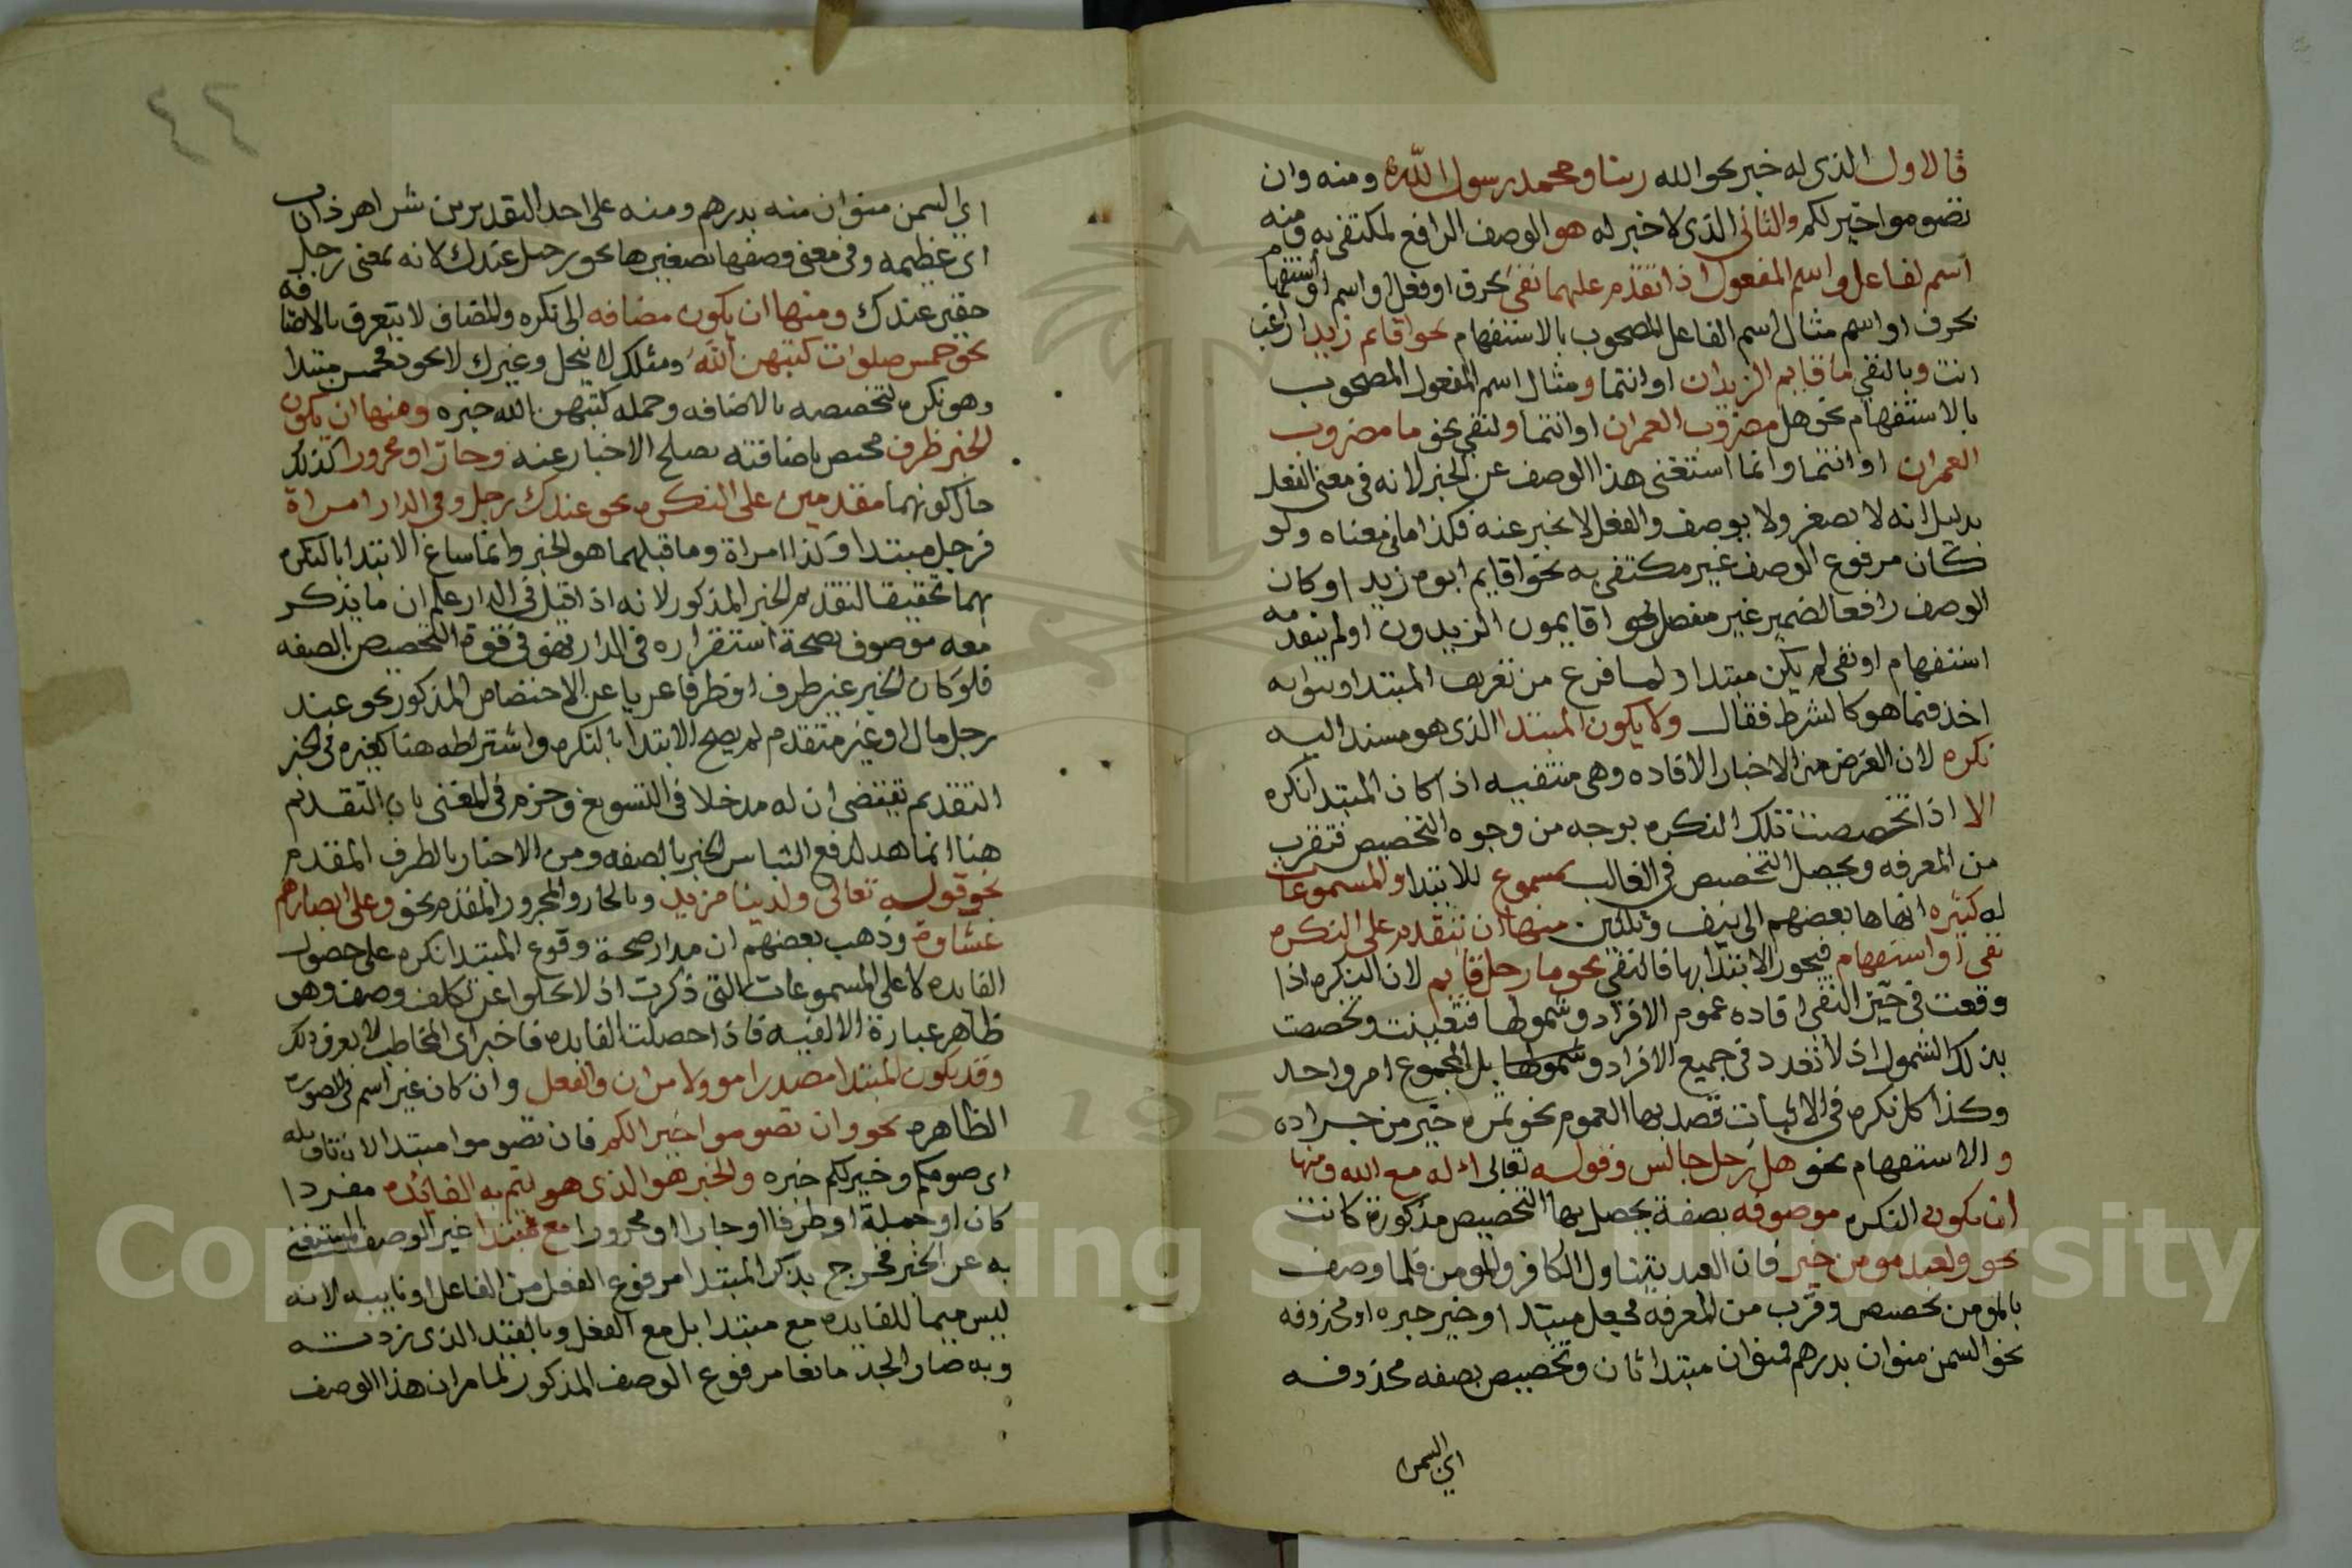 فالاول الذى له خبر نحو الله ربنا ومحمد رسول الله ومنه وان
تصوموا خير لكم والثانى الذى لا خبر له هو الوصف الرافع لمكتفى به ومنه
اسم الفاعل واسم المفعول اذا تقدم عليهما نفى بحرف او فعل او اسم او استفهام
بحرف او اسم مثال اسم الفاعل المصحوب بالاستفهام نحو اقايم زيد اراغب
انت وبالنفى ما قايم الزيدان او انتما ومثال اسم المفعول المصحوب
بالاستفهام نحو هل مضروب العمران او انتما ولنفى نحو ما مضروب
العمران او انتما وانما استغنى هذا الوصف عن الخبر لانه فى معنى الفعل
بدليل انه لا يصغر ولا يوصف والفعل لا يخبر عنه فكذا ما فى معناه ولو
كان مرفوع الوصف غير مكتفى به نحو اقايم ابوه زيد او كان
الوصف رافعا لضمير غير منفصل نحو اقايمون الزيدون او لم يتقدمه
استفهام او نفى لم يكن مبتدا ولما فرغ من تعريف المبتدا وبيوابه
اخذ فيما هو كالشرط فقال ولا يكون المبتدا الذى هو مسند اليه
نكره لان الغرض من الاخبار الافاده وهى منتفيه اذا كان المبتدا نكره
الا اذا تخصصت تلك النكره بوجه من وجوه التخصيص فتقرب
من المعرفه ويحصل التخصيص فى الغالب بمسموع للابتدا والمسموعات
له كثيره انهاها بعضهم الى نيف وثلثين منها ان يتقدم على النكره
نفى او استفهام فيجوز الابتدا بها فالنفى نحو ما رجل قايم لان النكره اذا
وقعت فى حيز النفى افاده عموم الافراد وشمولها فتعينت وتخصصت
بذلك الشمول اذ لا تعدد فى جميع الافراد وشمولها بل المجموع امر واحد
وكذا كل نكره فى الاثبات قصد بها العموم نحو تمره خير من جراده
والاستفهام نحو هل رجل جالس وقوله تعالى اءله مع الله ومنها
ان تكون النكره موصوفه بصفة يحصل بها التخصيص مذكورة كانت
نحو ولعبد مومن خير فان العبد يتناول الكافر والمومن فلما وصف
بالمومن تخصيص وقرب من المعرفه فجعل مبتدا وخير خبره او محذوفه
نحو السمن منوان بدرهم فمنوان مبتدا ثان وتخصيص بصفه محذوفه
اى السمن
٤٢
اى السمن منوان منه بدرهم ومنه على احد التقديرين شر اهر ذا ناب
اى عظيمه وفى معنى وصفها تصغيرها نحو رجيل عندك لانه بمعنى رجل
حقير عندك ومنها ان يكون مضافه الى نكره والمضاف لا يتعرف بالاضافه
نحو خمس صلوات كتبهن الله ومثلك لا يبخل وغيرك لا يجود فخمس مبتدا
وهو نكره لتخصيصه بالاضافه وجمله كتبهن الله خبره ومنها ان يكون
الخبر ظرف مختص باضافته يصلح الاخبار عنه وجار او مجرور كذلك
حال كونهما مقدمين على النكره نحو عندك رجل وفى الدار امراة
فرجل مبتدا وكذا امراة وما قبلهما هو الخبر وانما ساغ الابتدا بالنكره
بهما تحقيقا لتقدم الخبر المذكور لانه اذا قيل فى الدار علم ان ما يذكر
معه موصوف بصحة استقراره فى الدار فهو فى قوة التخصيص بالصفه
فلو كان الخبر غير ظرف او ظرفا عريا عن الاختصاص المذكور نحو عند
رجل مال او غير متقدم لم يصح الابتدا بالنكره واشتراطه هنا كغيره فى الخبر
التقديم يقتضى ان له مدخلا فى التسويغ وجزم فى المغنى بان التقديم
هنا انما هو لدفع التباس الخبر بالصفه ومن الاخبار بالظرف المقدم
نحو قوله تعالى ولدينا مزيد وبالجار والمجرور المقدم نحو وعلى ابصارهم
غشاوة وذهب بعضهم ان مدار صحة وقوع المبتدا نكره على حصول
الفايده لا على المسموعات التى ذكرت اذ لا يخلوا عن تكلف وصف وهو
ظاهر عبارة الالفيه فاذا حصلت الفايده فاخبر اى المخاطب لا يعرف ذلك
وقد يكون المبتدا مصدرا موولا من ان والفعل وان كان غير اسم فى الصوره
الظاهره نحو وان تصوموا خير لكم فان تصوموا مبتدا لان تاويله
اى صومكم وخير لكم خبره والخبر هو الذى هو يتم به الفائده مفردا
كان او جملة او ظرفا او جارا او مجرورا مع مبتدا غير الوصف المستغنى
به عن الخبر فخرج بذكر المبتدا مرفوع الفعل من الفاعل او نايبه لانه
ليس متمما للفايده مع مبتدا بل مع الفعل وبالقيد الذى زدته
وبه صار الحد مانعا مرفوع الوصف المذكور لما مر ان هذا الوصف
Copyright © King Saud University
1957